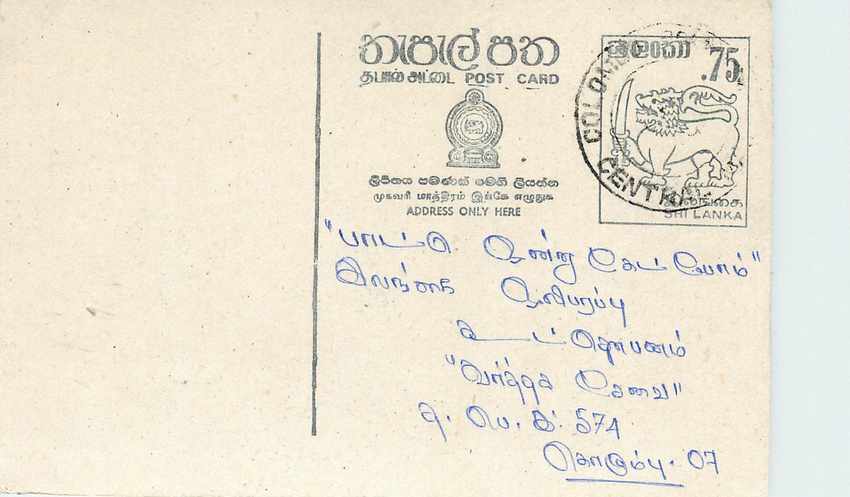 තැපැල් පත
தபால் அட்டை POST CARD
ලිපිනය පමණක් මෙහි ලියන්න
முகவரி மாத்திரம் இங்கே எழுதுக
ADDRESS ONLY HERE
ශ්‍රී ලංකා
.75
COLOMBO
CENTRAL
இலங்கை
SRI LANKA
"பாட்டு ஒன்று கேட்போம்"
இலங்கை ஒலிபரப்பு
கூட்டுத்தாபனம்
"வர்த்தக சேவை"
த. பெ. இ. 574
கொழும்பு. 07